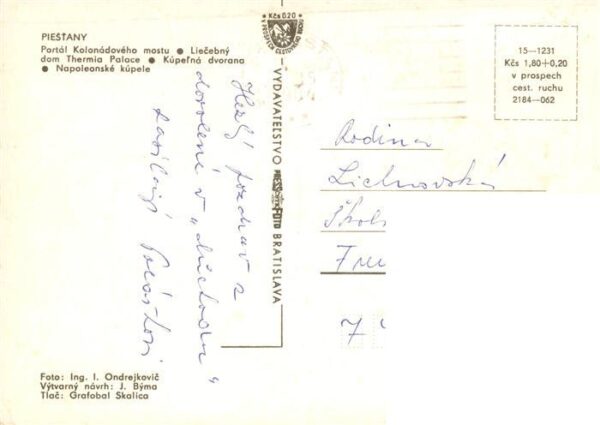 PIEŠŤANY
Portál Kolonádového mostu ● Liečebný
dom Thermia Palace ● Kúpeľná dvorana
● Napoleonské kúpele
Kčs 0.20
15-1231
Kčs 1,80+0,20
v prospech
cest. ruchu
2184-062
Hezký pozdrav z
dovolené v „důchodu"
zasílají
VYDAVATEĽSTVO PRESSFOTO BRATISLAVA
Rodina
Lichnovská
Škol
Fren
7
Foto: Ing. I. Ondrejkovič
Výtvarný návrh: J. Býma
Tlač: Grafobal Skalica